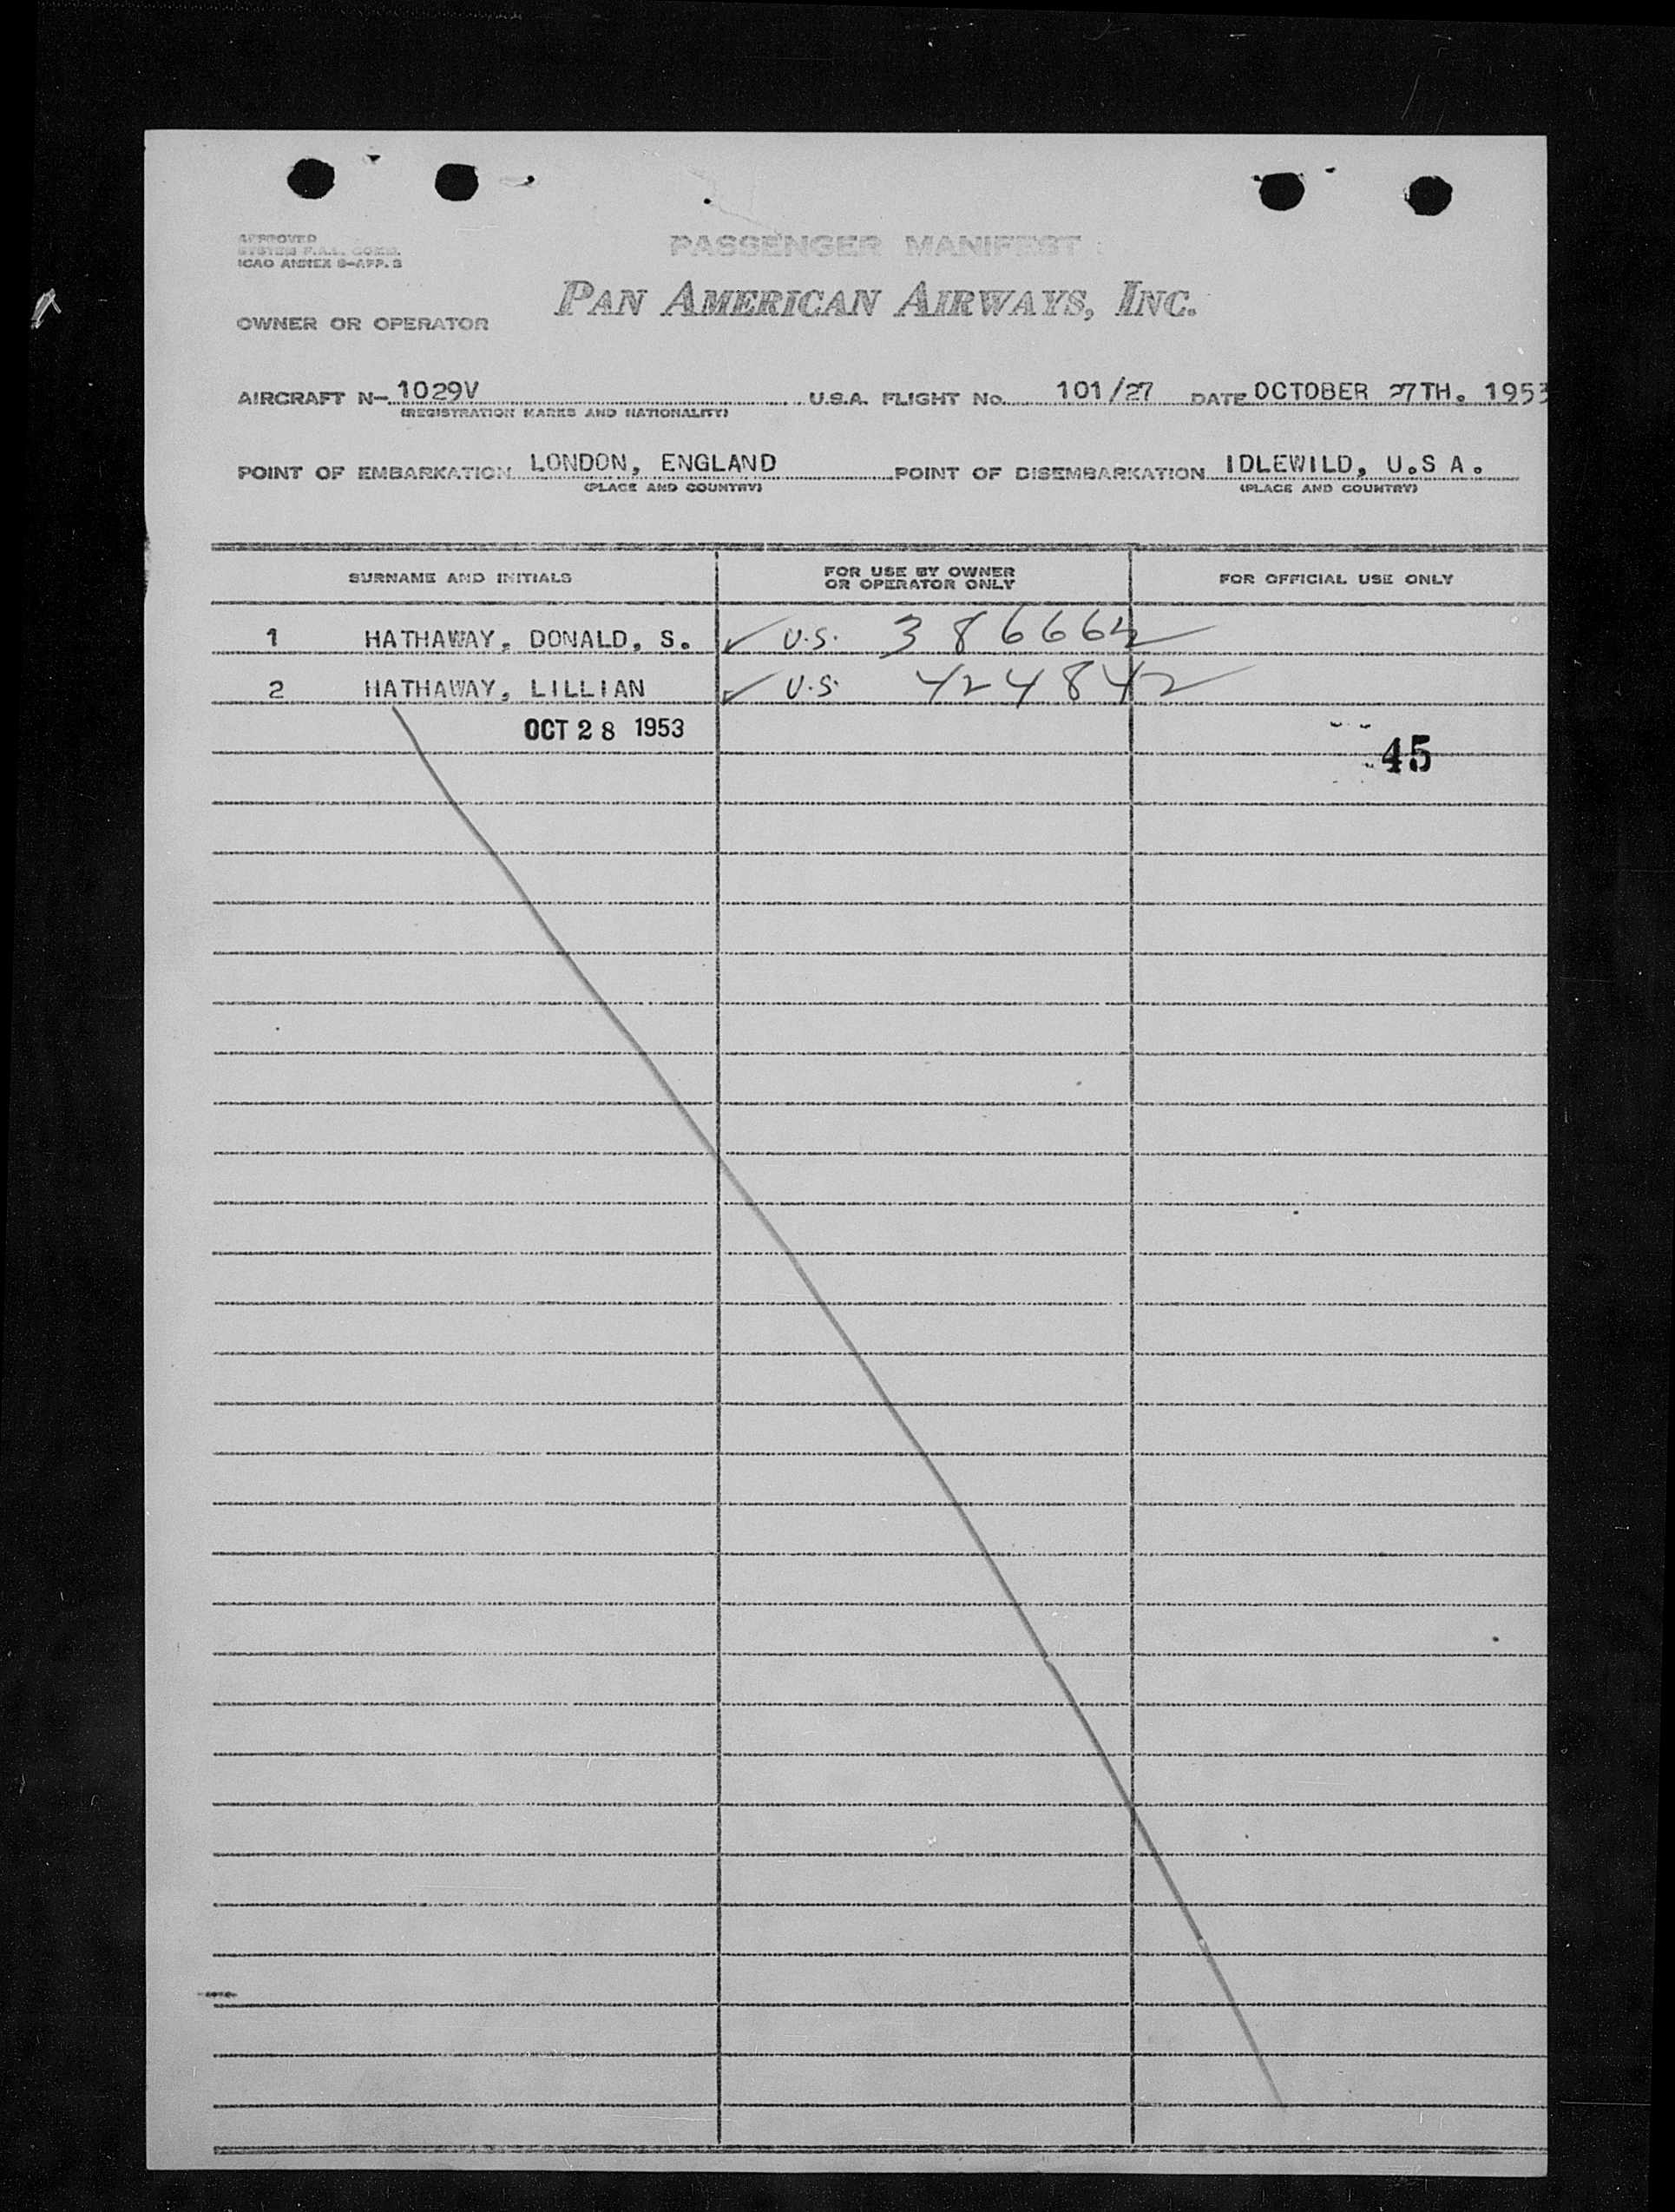 APPROVED
SYSTEM F.A.L. COMM.
ICAO ANNEX 9-APP. 3
PASSENGER MANIFEST
PAN AMERICAN AIRWAYS, INC.
OWNER OR OPERATOR
AIRCRAFT N- 1029V U.S.A. FLIGHT No. 101/27 DATE OCTOBER 27TH. 1953
(REGISTRATION MARKS AND NATIONALITY)
POINT OF EMBARKATION LONDON, ENGLAND POINT OF DISEMBARKATION IDLEWILD, U.S A.
(PLACE AND COUNTRY) (PLACE AND COUNTRY)
SURNAME AND INITIALS FOR USE BY OWNER OR OPERATOR ONLY FOR OFFICIAL USE ONLY
1 HATHAWAY, DONALD, S. ✓ U.S.
2 HATHAWAY, LILLIAN ✓ U.S. 424842
OCT 28 1953
45